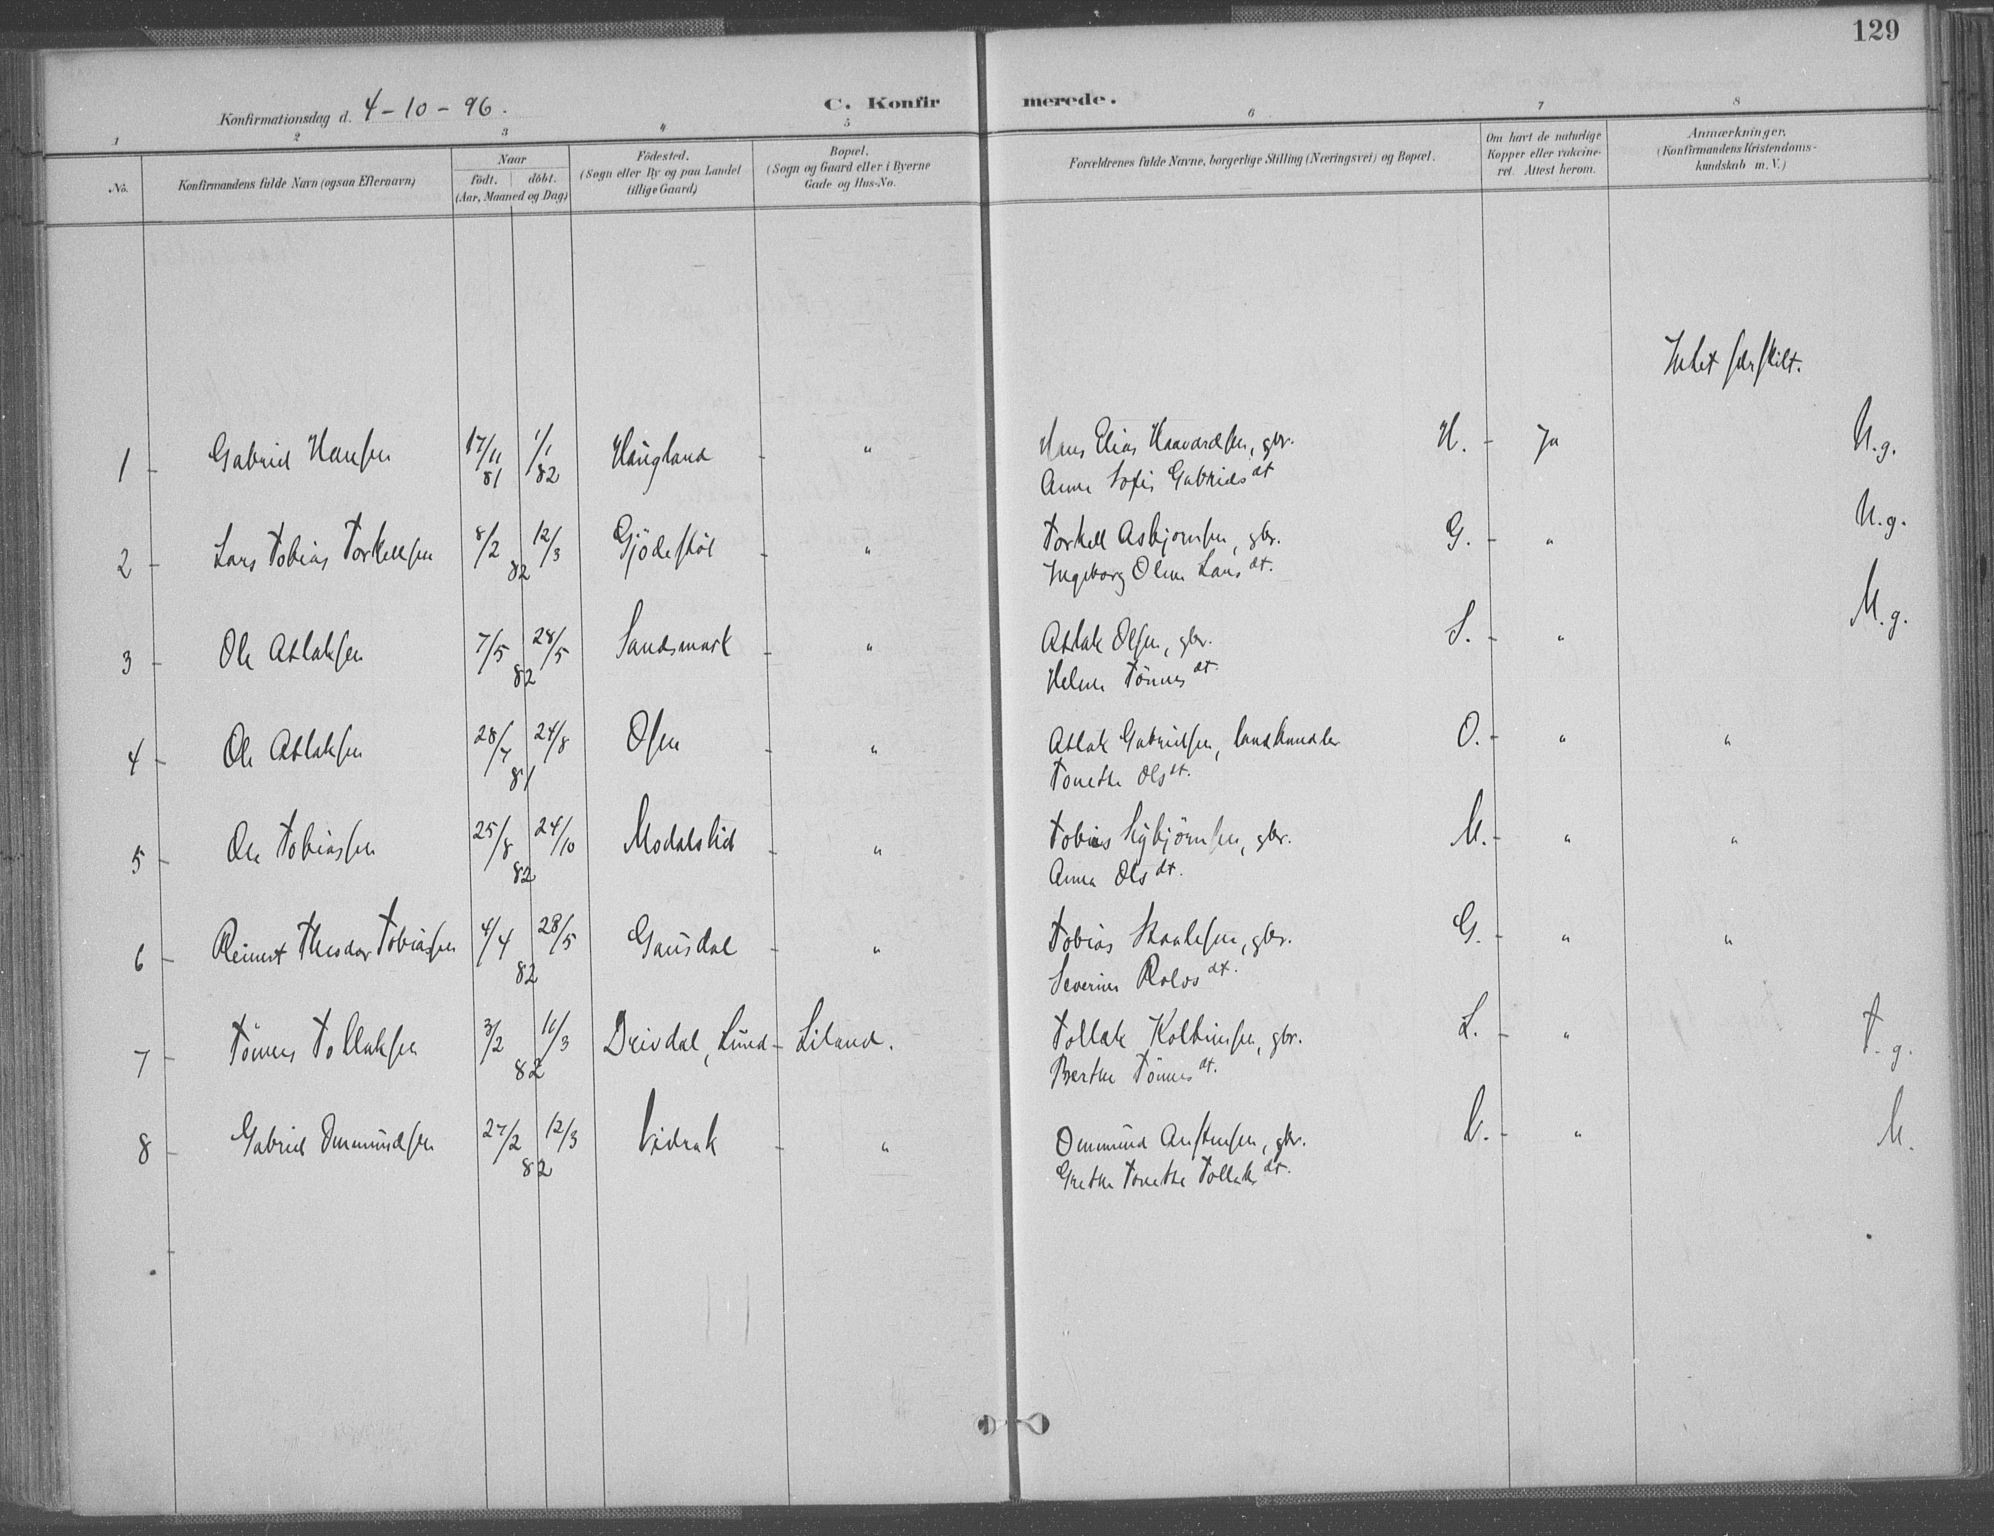 129
Konfirmationsdag d. 4-10-96.
C. Konfirmerede.
1 2 3 4 5 6 7 8
No.
Konfirmandens fulde Navn (ogsaa Efternavn)
Naar
födt. döbt.
(Aar, Maaned og Dag)
Födested.
(Sogn eller By og paa Landet
tillige Gaard)
Bopæl.
(Sogn og Gaard eller i Byerne
Gade og Hus-No.
Forældrenes fulde Navne, borgerlige Stilling (Næringsvei) og Bopæl.
Om havt de naturlige
Kopper eller vakcine-
ret. Attest herom.
Anmærkninger,
(Konfirmandens Kristendoms-
kundskab m. V.)
Intet særskilt.
1 - Gabriel Hansen 17/11 81 1/1 82 Haugland - " Hans Elias Haavardsen, gbr. H. - Ja M.g.
Anna Sofie Gabriels dt
2 - Lars Tobias Torkelsen 8/2 12/3 82 Gjödestöl - " Torkell Asbjornsen, gbr. G. - " M.g.
Ingeborg Oline Lars dt.
3 - Ole Atlaksen 7/5 28/5 82 Sandsmark - " Atlak Olsen, gbr. S. - " M.g.
Helene Tönnes dt.
4 - Ole Atlaksen 28/7 24/8 81 Osen - " Atlak Gabrielsen, landhandler O. - " "
Tonette Ols dt.
5 - Ole Tobiassen 25/8 24/10 82 Modalslid - " Tobias Sigbjörnsen, gbr. M. - " "
Anna Ols dt.
6 - Reinert Theodor Tobiassen 4/4 28/5 82 Gausdal - " Tobias Skaalesen, gbr. G. - " "
Severine Rolvs dt.
7 - Tönnes Tollaksen 3/2 11/3 82 Drivdal, Lund - Liland. Tollak Kolbeinsen, gbr. L. - " T.g.
Berthe Tönnes dt.
8 - Gabriel Ommundsen 27/2 12/3 82 Vidrak - " Ommund Austensen, gbr. V. - " M.
Grethe Tonette Tollaks dt.